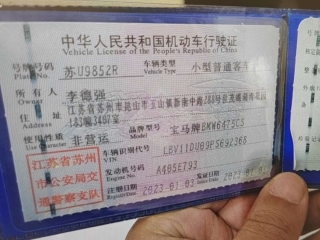 中华人民共和国机动车行驶证
Vehicle License of the People's Republic of China
号牌号码 苏U9852R 车辆类型 小型普通客车
Plate No. Vehicle Type
所有人 李德强
Owner
住址 江苏省苏州市昆山市玉山镇新南中路288号
Address 183幢3407室
使用性质 非营运 品牌型号 宝马牌BMW6475CS
Use Character Model
江苏省苏州
市公安局交
通警察支队
车辆识别代号
VIN
发动机号码 A485E793
Engine No.
注册日期 2023-01-03 发证日期
Register Date Issue Date